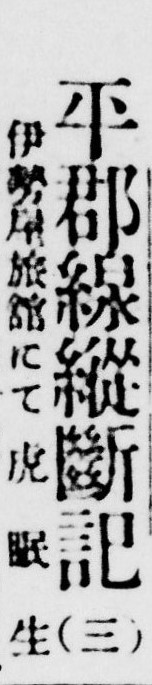 平郡線縱斷記(三)
伊勢屋旅舘にて 虎眠生